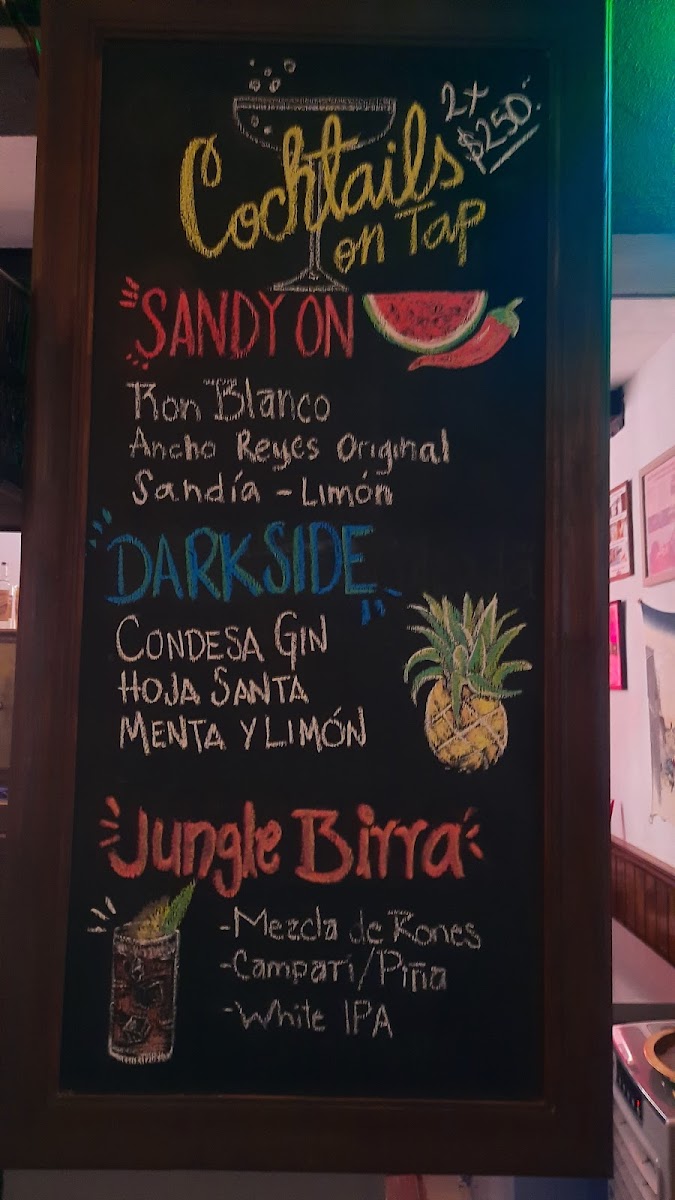 Cocktails
on Tap
2x
$250.
SANDY ON
Ron Blanco
Ancho Reyes Original
Sandía - Limón
DARKSIDE
CONDESA GIN
HOJA SANTA
MENTA Y LIMÓN
Jungle Birra
-Mezcla de Rones
-Campari/Piña
-White IPA